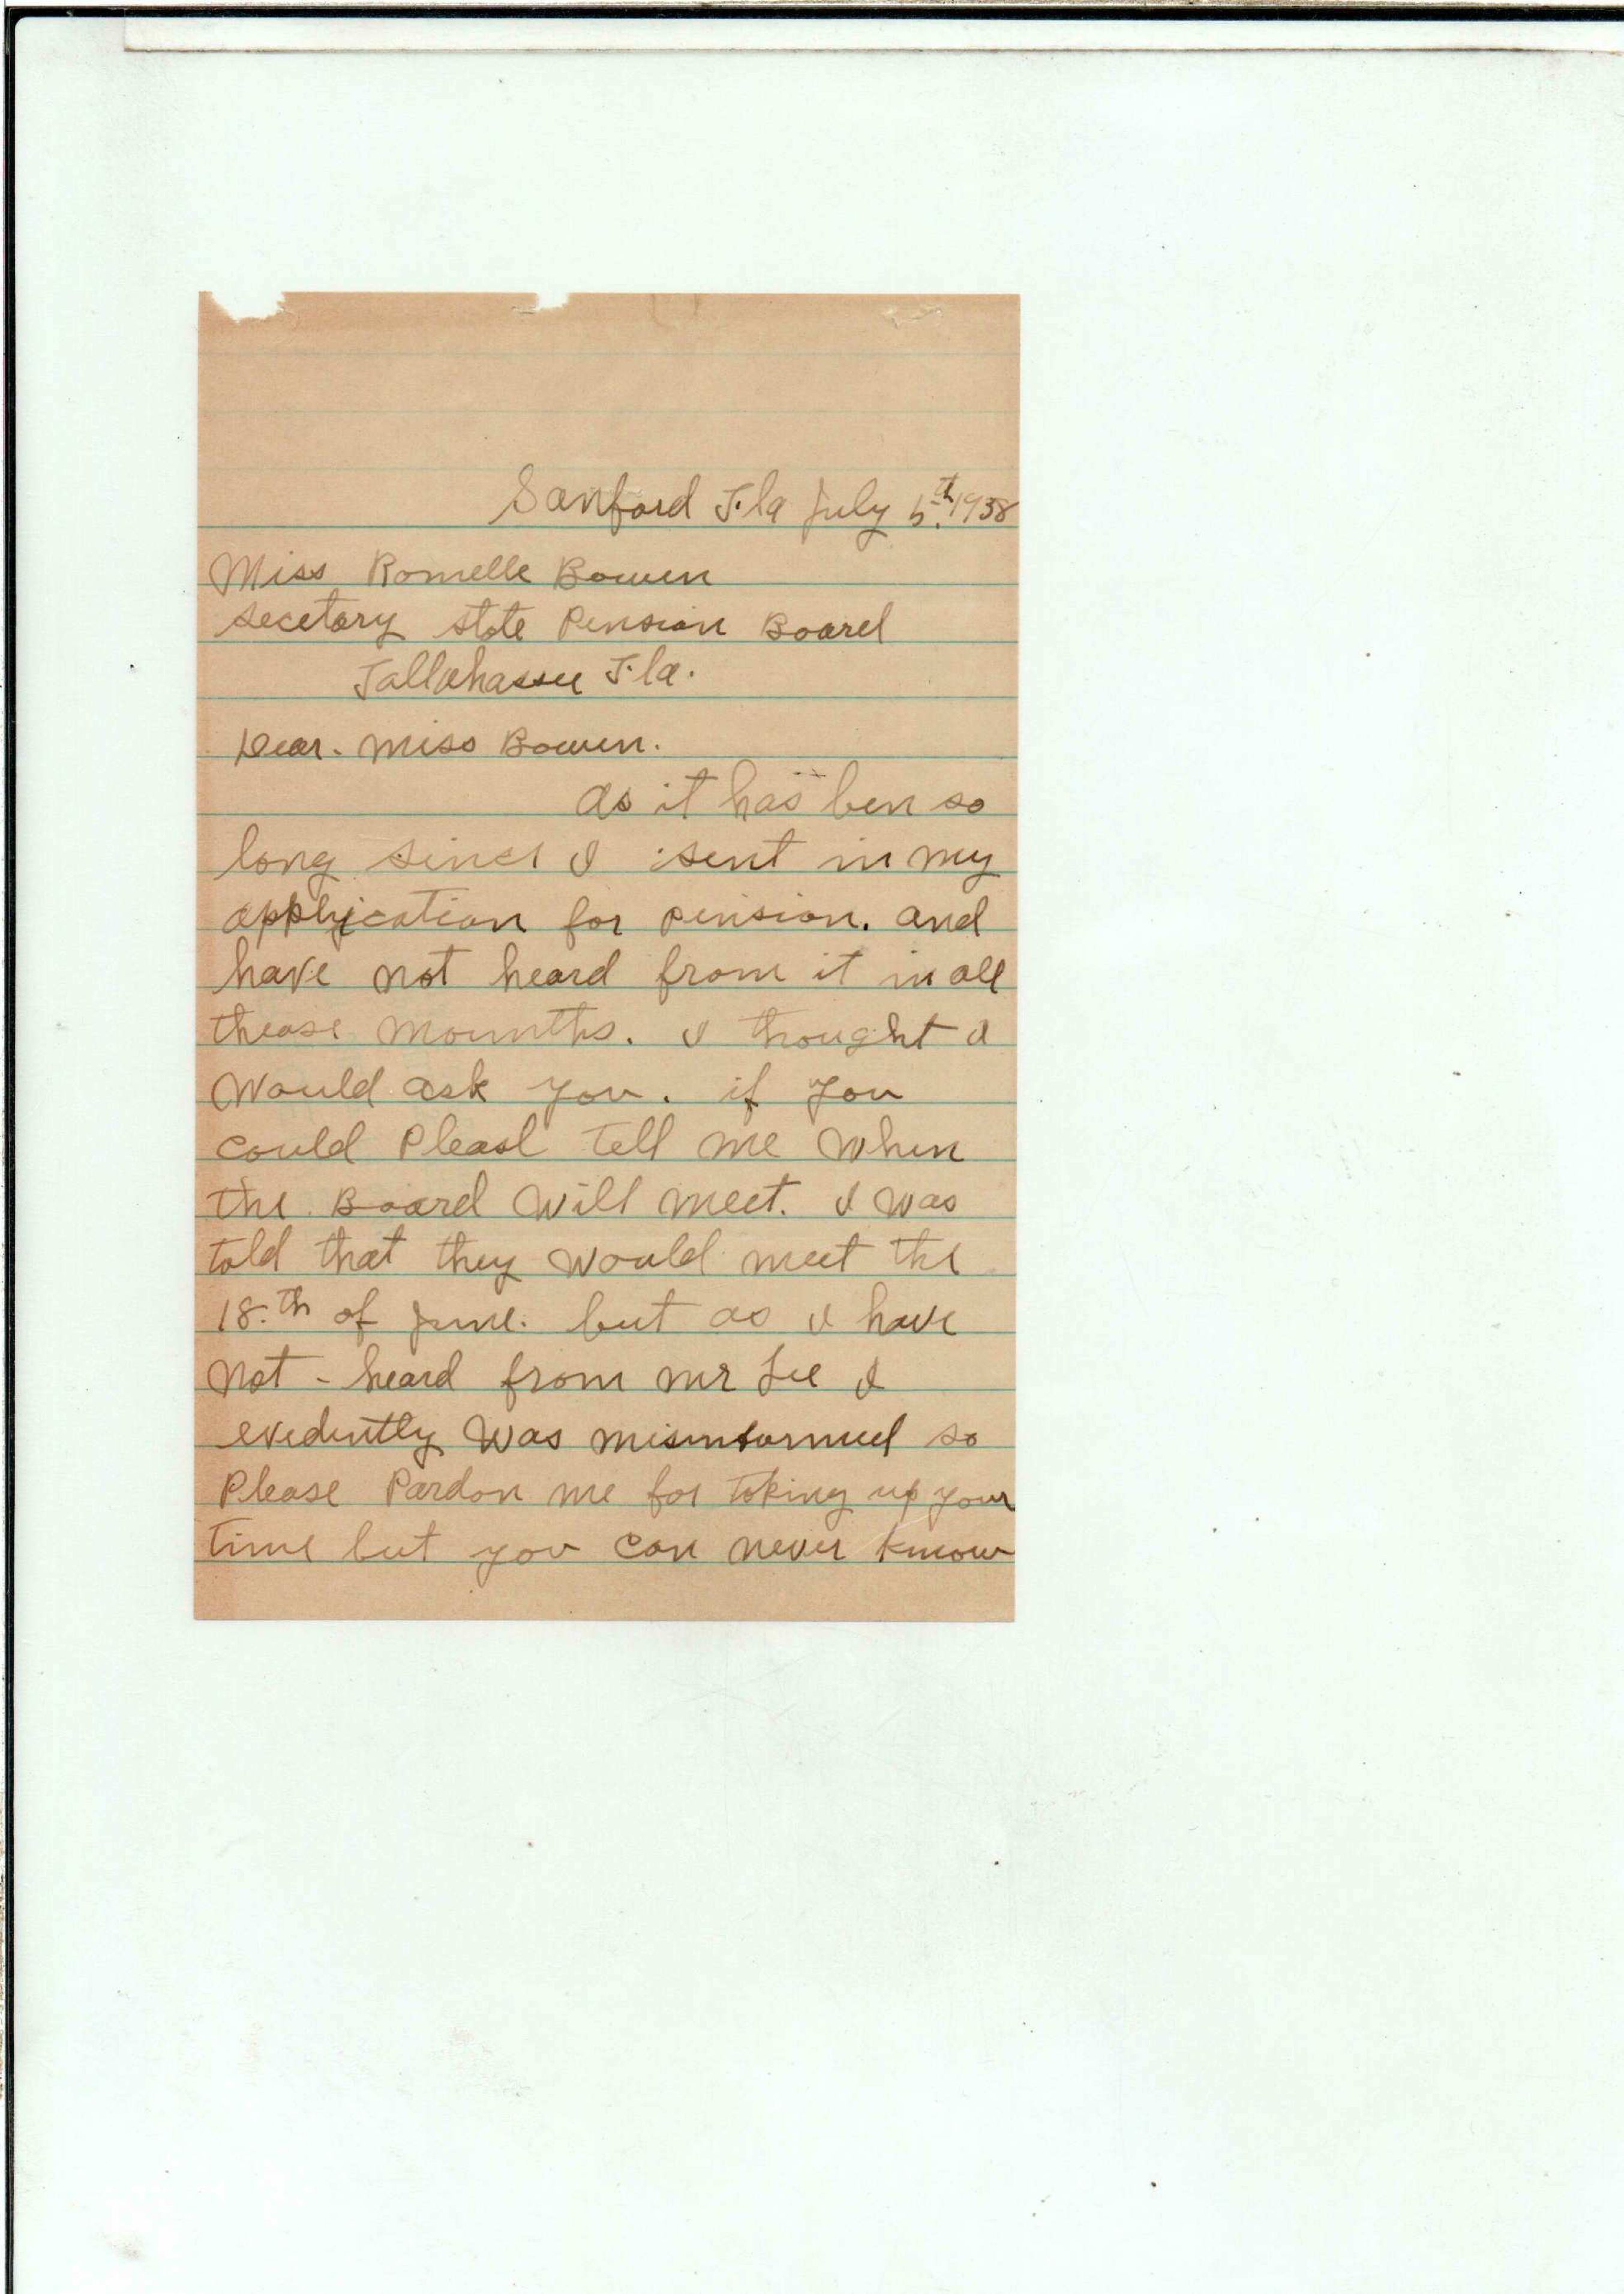 Sanford Fla July 5.th 1938
Miss Romelle Bowen
secetary state Pension Board
Tallahassee Fla.
Dear. Miss Bowen.
as it has ben so
long since I sent in my
application for pension. and
have not heard from it in all
thease mounths. I thought I
would ask you. if you
could Please tell me when
the Board will meet. I was
told that they would meet the
18.th of June. but as I have
not - heard from mr Lee I
evedently was misinformed so
Please Pardon me for taking up your
time but you can never know